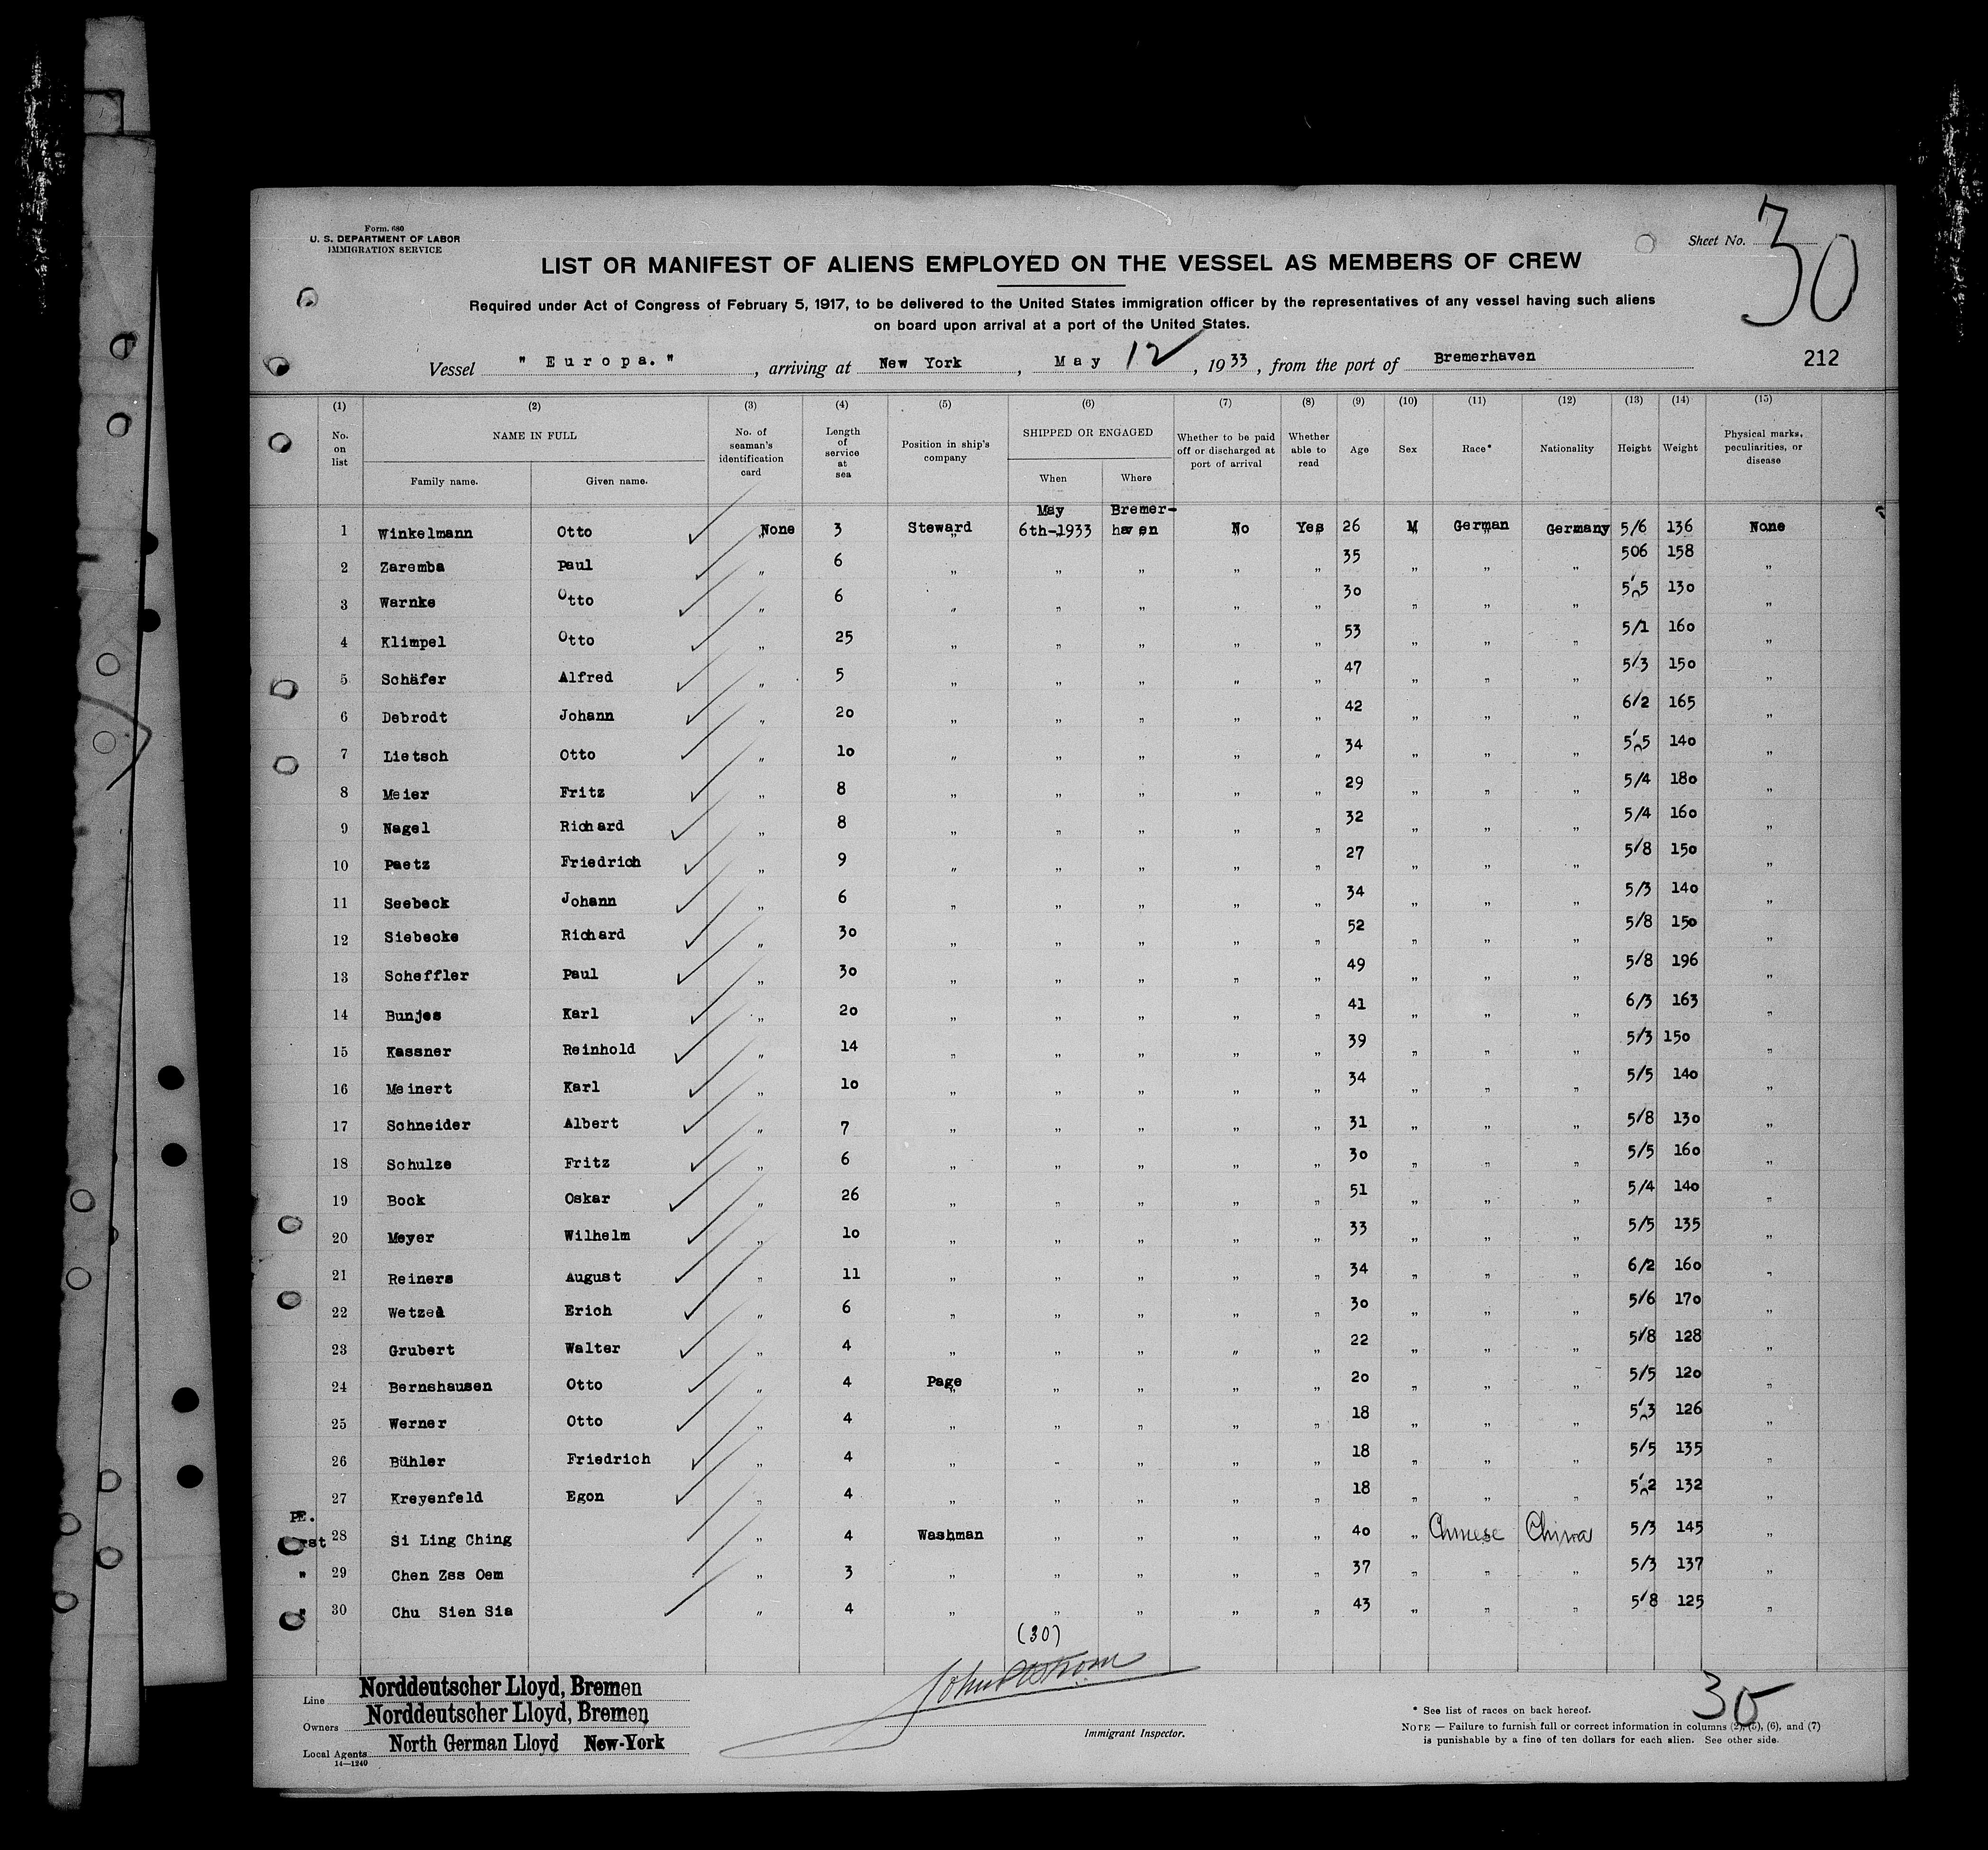 Form. 680
U. S. DEPARTMENT OF LABOR
IMMIGRATION SERVICE
Sheet No. 30
LIST OR MANIFEST OF ALIENS EMPLOYED ON THE VESSEL AS MEMBERS OF CREW
Required under Act of Congress of February 5, 1917, to be delivered to the United States immigration officer by the representatives of any vessel having such aliens
on board upon arrival at a port of the United States.
Vessel " Europa. ", arriving at New York, May 12, 1933, from the port of Bremerhaven 212
(1) (2) (3) (4) (5) (6) (7) (8) (9) (10) (11) (12) (13) (14) (15)
No. on list NAME IN FULL Family name. Given name. No. of seaman's identification card Length of service at sea Position in ship's company SHIPPED OR ENGAGED When Where Whether to be paid off or discharged at port of arrival Whether able to read Age Sex Race* Nationality Height Weight Physical marks, peculiarities, or disease
1 Winkelmann Otto None 3 Steward May 6th-1933 Bremer-haven No Yes 26 M German Germany 5/6 136 None
2 Zaremba Paul " 6 " " " " " 35 " " " 506 158 "
3 Warnke Otto " 6 " " " " " 30 " " " 5'5 130 "
4 Klimpel Otto " 25 " " " " " 53 " " " 5/1 160 "
5 Schäfer Alfred " 5 " " " " " 47 " " " 5/3 150 "
6 Debrodt Johann " 20 " " " " " 42 " " " 6/2 165 "
7 Lietsch Otto " 10 " " " " " 34 " " " 5'5 140 "
8 Meier Fritz " 8 " " " " " 29 " " " 5/4 180 "
9 Nagel Richard " 8 " " " " " 32 " " " 5/4 160 "
10 Paetz Friedrich " 9 " " " " " 27 " " " 5/8 150 "
11 Seebeck Johann " 6 " " " " " 34 " " " 5/3 140 "
12 Siebecke Richard " 30 " " " " " 52 " " " 5/8 150 "
13 Scheffler Paul " 30 " " " " " 49 " " " 5/8 196 "
14 Bunjes Karl " 20 " " " " " 41 " " " 6/3 163 "
15 Kassner Reinhold " 14 " " " " " 39 " " " 5/3 150 "
16 Meinert Karl " 10 " " " " " 34 " " " 5/5 140 "
17 Schneider Albert " 7 " " " " " 31 " " " 5/8 130 "
18 Schulze Fritz " 6 " " " " " 30 " " " 5/5 160 "
19 Bock Oskar " 26 " " " " " 51 " " " 5/4 140 "
20 Meyer Wilhelm " 10 " " " " " 33 " " " 5/5 135 "
21 Reiners August " 11 " " " " " 34 " " " 6/2 160 "
22 Wetzel Erich " 6 " " " " " 30 " " " 5/6 170 "
23 Grubert Walter " 4 " " " " " 22 " " " 5/8 128 "
24 Bernshausen Otto " 4 Page " " " " 20 " " " 5/5 120 "
25 Werner Otto " 4 " " " " " 18 " " " 5'3 126 "
26 Bühler Friedrich " 4 " " " " " 18 " " " 5/5 135 "
27 Kreyenfeld Egon " 4 " " " " " 18 " " " 5'2 132 "
PE.
28 Si Ling Ching " 4 Washman " " " " 40 " Chinese China 5/3 145 "
" 29 Chen Zss Oem " 3 " " " " " 37 " " " 5/3 137 "
" 30 Chu Sien Sia " 4 " " " " " 43 " " " 5/8 125 "
(30)
Line Norddeutscher Lloyd, Bremen
Owners Norddeutscher Lloyd, Bremen
Local Agents North German Lloyd New-York
14—1240
Immigrant Inspector.
30
* See list of races on back hereof.
NOTE — Failure to furnish full or correct information in columns (2), (5), (6), and (7)
is punishable by a fine of ten dollars for each alien. See other side.